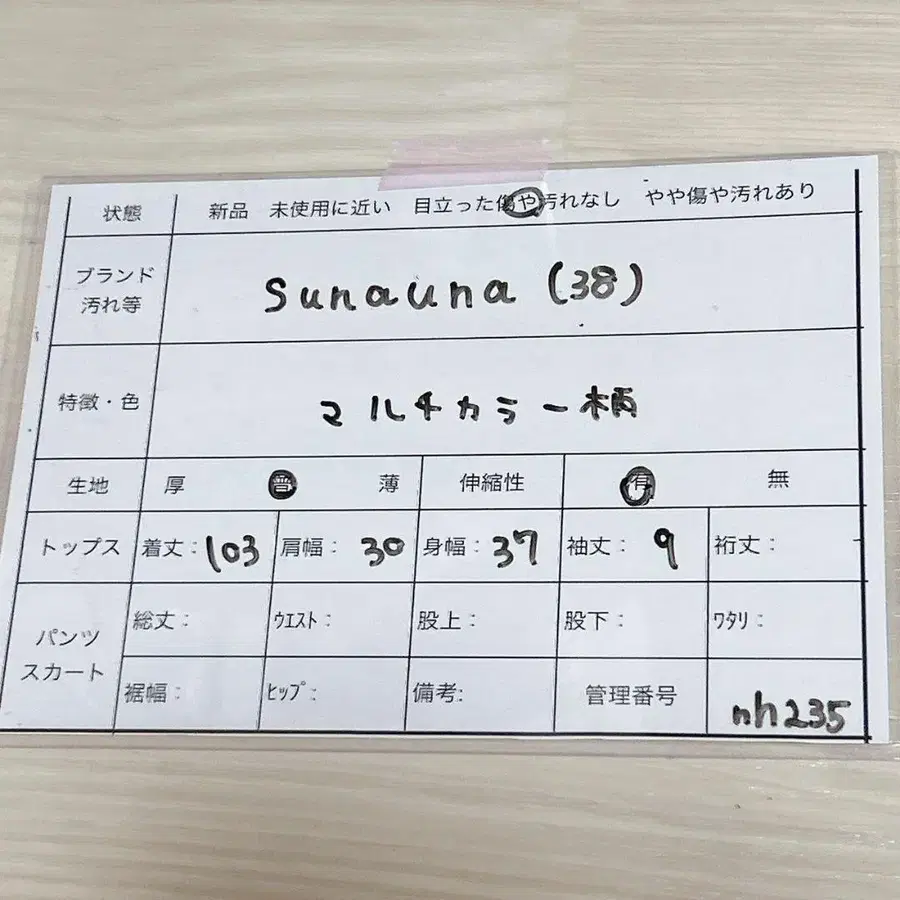 状態 新品 未使用に近い 目立った傷や汚れなし やや傷や汚れあり
ブランド
汚れ等
sunauna (38)
特徴・色 マルチカラー柄
生地 厚 普 薄 伸縮性 有 無
トップス 着丈:103 肩幅:30 身幅:37 袖丈:9 裄丈:
パンツ
スカート
総丈: ウエスト: 股上: 股下: ワタリ:
裾幅: ヒップ: 備考: 管理番号 nh235